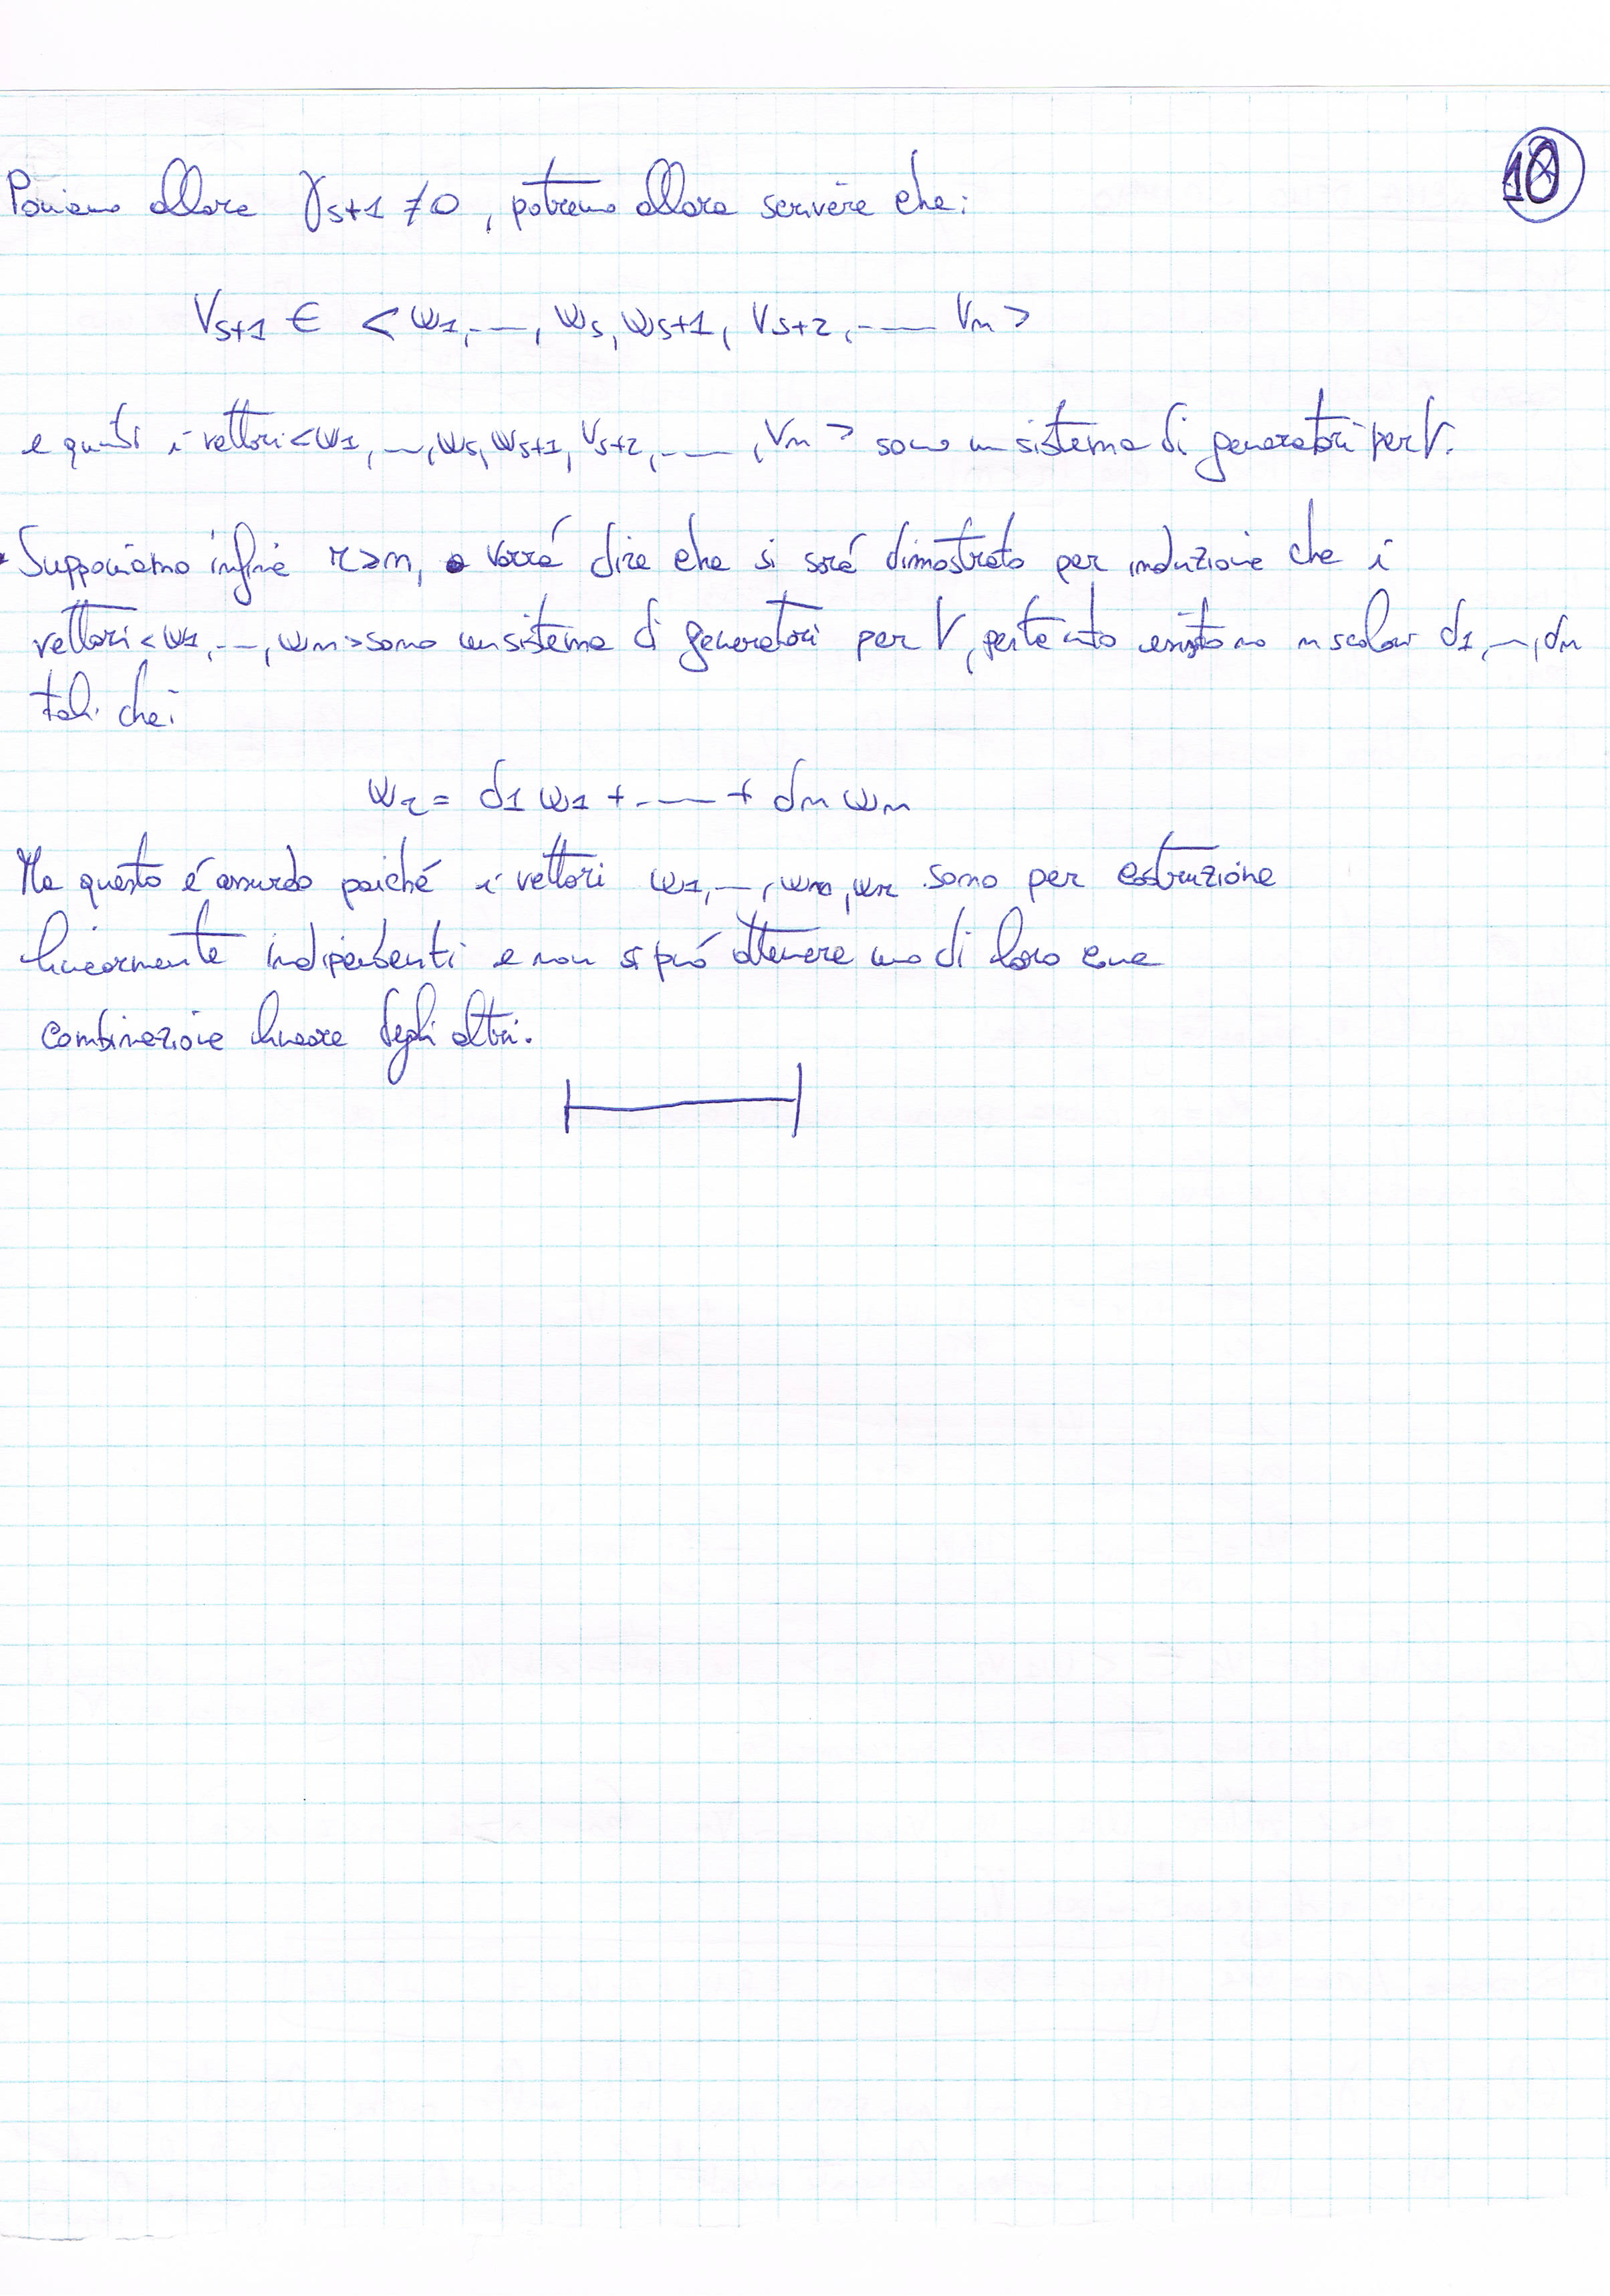 10
Poniamo allora γs+1 ≠ 0, potremo allora scrivere che:
Vs+1 ∈ <w1,...,ws,ws+1,vs+2,.... vn>
e quindi i vettori <w1,...,ws,ws+1,vs+2,....,vn> sono un sistema di generatori per V.
• Supponiamo infine r>n, vorrá dire che si sará dimostrato per induzione che i
vettori <w1,...,wn> sono un sistema di generatori per V, pertanto esistono n scalari d1,...,dn
tali che:
wr = d1 w1 + .... + dn wn
Ma questo é assurdo poiché i vettori w1,...,wn,wr sono per costruzione
linearmente indipendenti e non si puó ottenere uno di loro come
combinazione lineare degli altri.